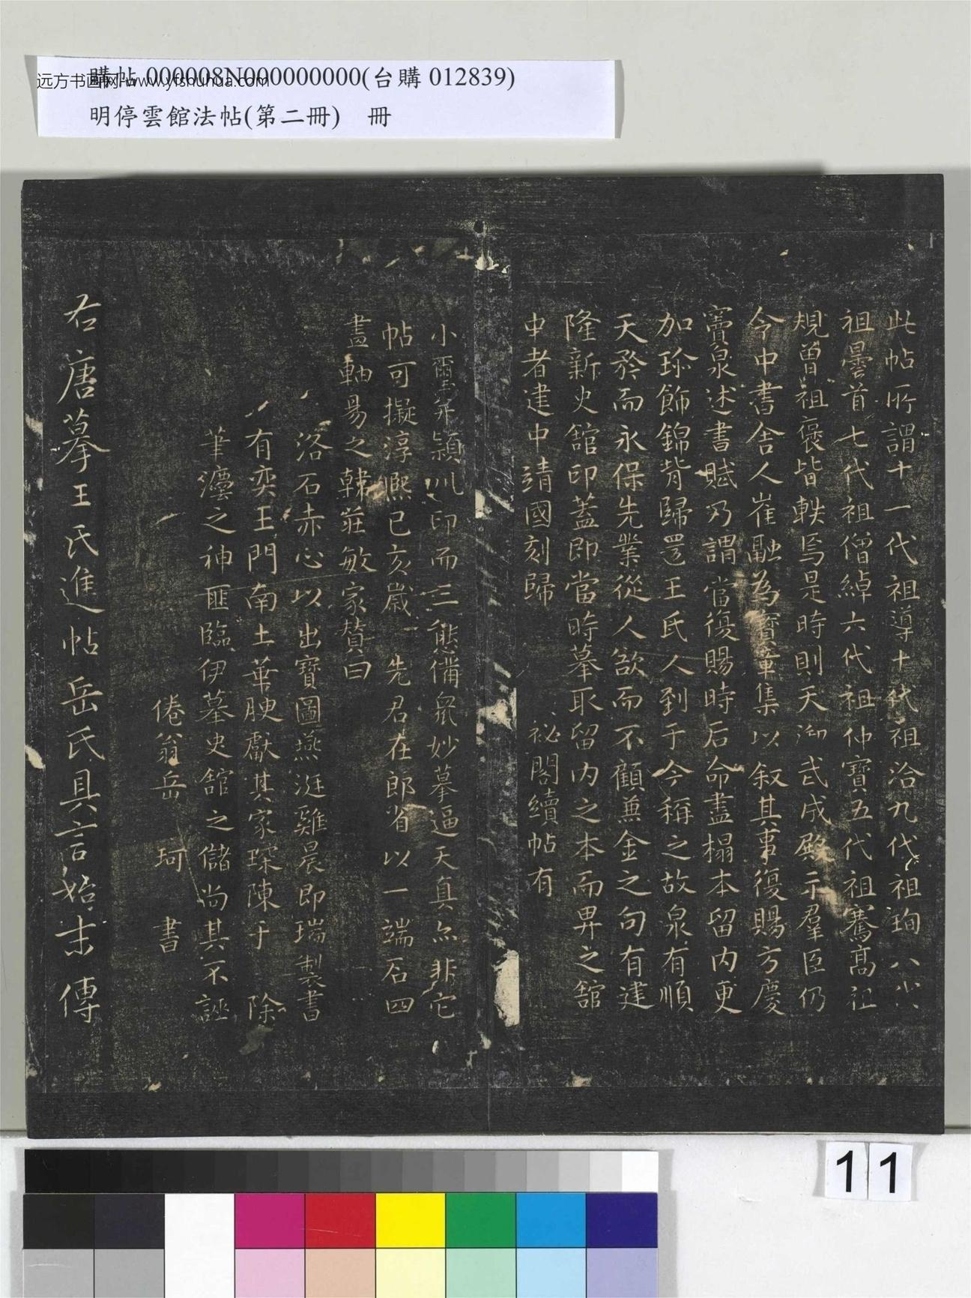 購帖 000008N000000000(台購 012839)
远方书画网 www.yfshuhua.com
明停雲館法帖(第二冊) 冊
此帖所謂十一代祖導十代祖洽九代祖珣八代
祖曇首七代祖僧綽六代祖仲寶五代祖騫高祖
規曾祖襃皆軼焉是時則天御武成殿示羣臣仍
令中書舍人崔融為寶章集以叙其事復賜方慶
竇泉述書賦乃謂當復賜時后命盡搨本留內更
加珍飾錦背歸還王氏人到于今稱之故泉有順
天矜而永保先業從人欲而不顧兼金之句有建
隆新史館印蓋即當時摹取留內之本而畀之館
中者建中靖國刻歸 祕閣續帖有
小璽潁川印而三態備衆妙摹逼天真亦非它
帖可擬淳熈己亥歲 先君在郎省以一端石四
畫軸易之韓莊敏家贊曰
洛石赤心以出寶圖燕涎雞晨即瑞製書
有奕王門南土華腴獻其家琛陳于 除
筆灋之神匪臨伊摹史館之儲尚其不誣
倦翁岳珂書
右唐摹王氏進帖岳氏具言始末傳
11